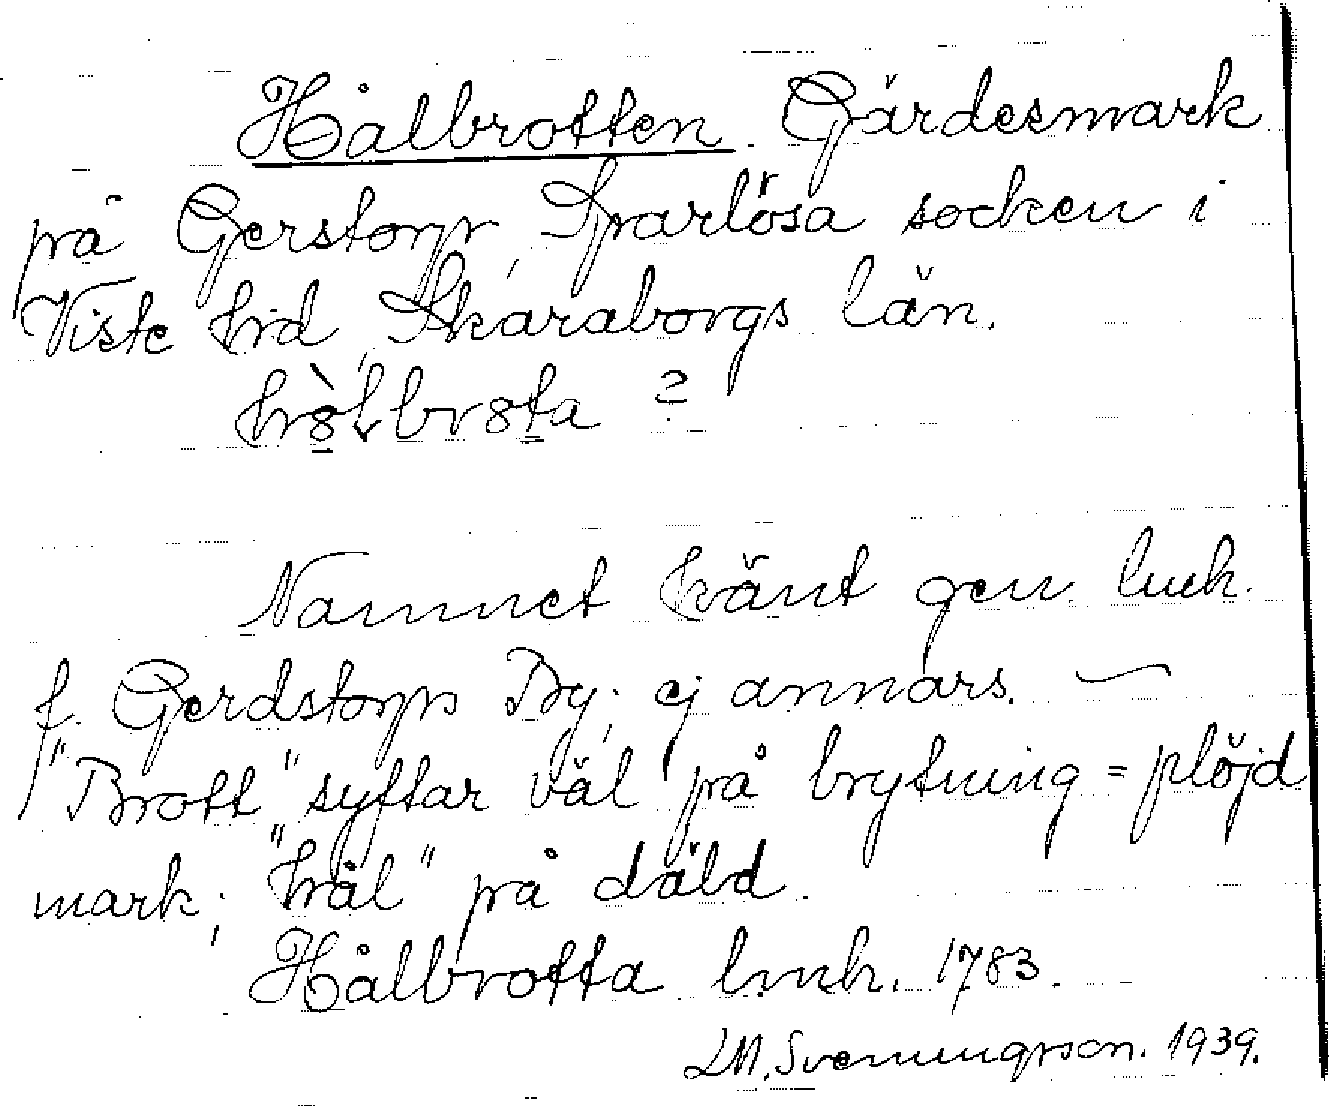 Hålbrotten. Gärdesmark
på Gerstorp, Sparlösa socken i
Viste hrd, Skaraborgs län.
?
Namnet känt gen. lmh.
f. Gerdstorps By; ej annars. —
"Brott" syftar väl på brytning = plöjd
mark; "hål" på däld.
Hålbrotta lmh. 1783.
LM. Svenungsson. 1939.